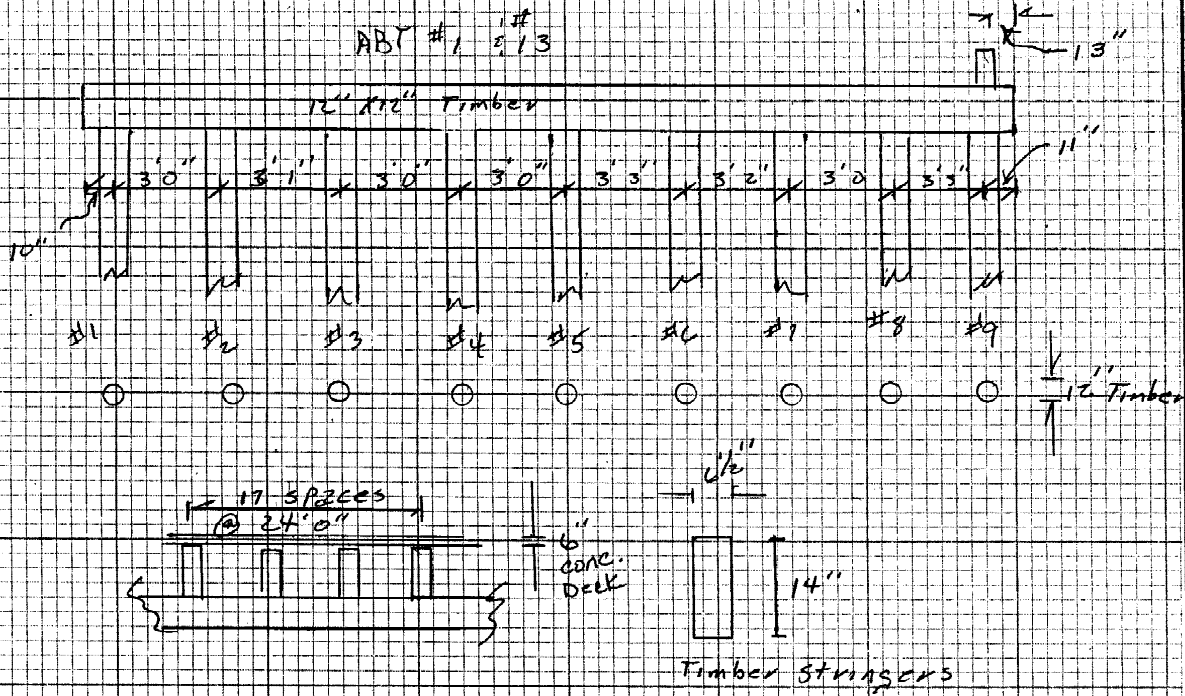 ABT #1 & #13
13"
12" X 12" Timber
11"
3'0" 3'1" 3'0" 3'0" 3'3" 3'2" 3'0 3'3"
10"
#1 #2 #3 #4 #5 #6 #7 #8 #9
12" Timber
6 1/2"
17 spaces
@ 24'0"
6"
conc.
Deck
14"
Timber Stringers